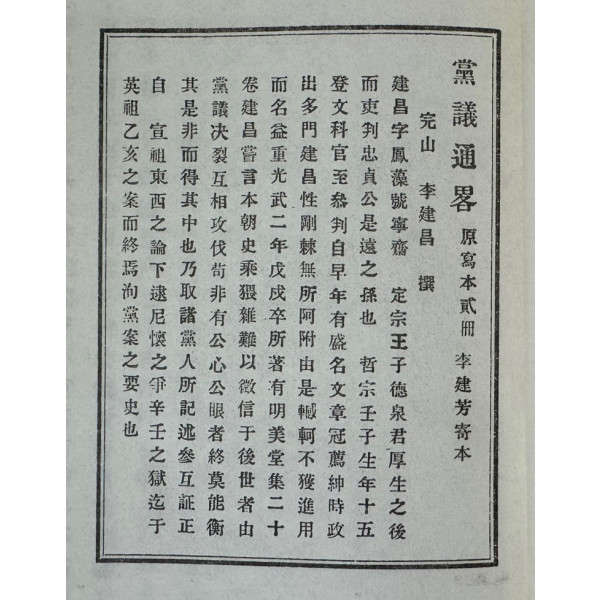 黨議通畧 原寫本貳冊 李建芳寄本
完山 李建昌 撰
建昌字鳳藻號寧齋 定宗王子德泉君厚生之後
而吏判忠貞公是遠之孫也 哲宗壬子生年十五
登文科官至叅判自早年有盛名文章冠薦紳時政
出多門建昌性剛棘無所阿附由是轗軻不獲進用
而名益重光武二年戊戌卒所著有明美堂集二十
卷建昌嘗言本朝史乘猥雜難以徵信于後世者由
黨議決裂互相攻伐苟非有公心公眼者終莫能衡
其是非而得其中也乃取諸黨人所記述參互証正
自 宣祖東西之論下逮尼懷之爭辛壬之獄迄于
英祖乙亥之案而終焉洵黨案之要史也